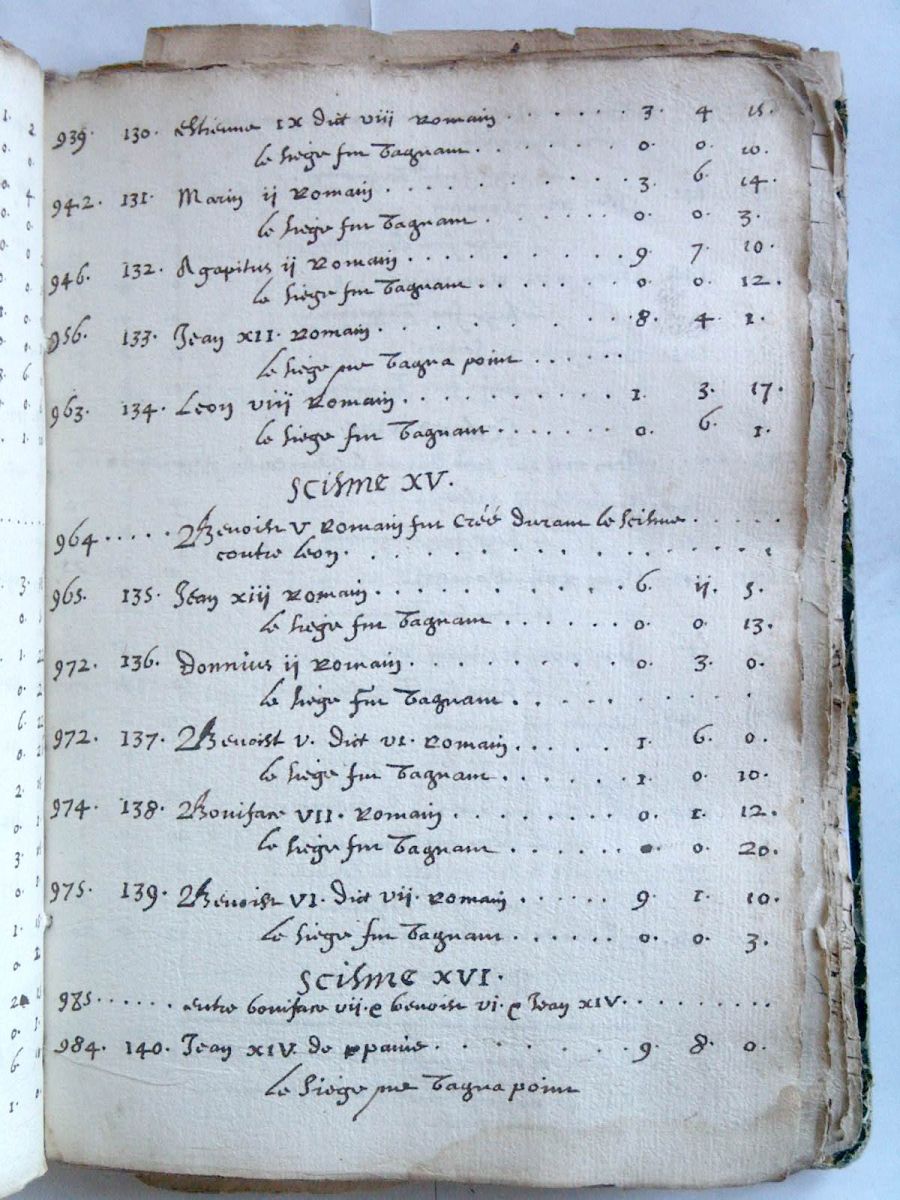 939. 130. Estienne IX dict viij Romain . . . . . . 3. 4 15.
le siege fut vaquant . . . . . . . 0. 0. 10.
942. 131. Marin ij Romain . . . . . . . . . 3. 6 14.
le siege fut vaquant . . . . . . . 0. 0. 3.
946. 132. Agapitus ij Romain . . . . . . . . . 9 7. 10.
le siege fut vaquant . . . . . . . 0. 0. 12.
956. 133. Jean XII. Romain . . . . . . . . . 8. 4. 1.
le siege ne vaqua point . . . . . .
963. 134. Leon viij Romain . . . . . . . . . 1. 3. 17.
le siege fut vaquant . . . . . . . 0. 6 1.
SCISME XV.
964 . . . . . Benoist V Romain fut créé durant le scisme . . . . .
contre Leon . . . . . . . . . . . . .
965. 135. Jean xiij Romain . . . . . . . . . 6. ij. 5.
le siege fut vaquant . . . . . . . 0. 0. 13.
972. 136. Donnius ij Romain . . . . . . . . . 0. 3. 0.
le siege fut vaquant . . . . . . . . .
972. 137. Benoist V. dict VI. Romain . . . . . 1. 6 0.
le siege fut vaquant . . . . . . 1. 0 10.
974. 138. Boniface VII. Romain . . . . . . . 0. 1. 12.
le siege fut vaquant . . . . . . 0. 20.
975. 139. Benoist VI. dict vij. Romain . . . . . . 9 1. 10.
le siege fut vaquant . . . . . . 0. 0. 3.
SCISME XVI.
985 . . . . . . entre boniface vij. & benoist vi. & Jean XIV. . . . . . . . .
984. 140. Jean XIV. de pavie . . . . . . . 9. 8. 0.
le siege ne vaqua point